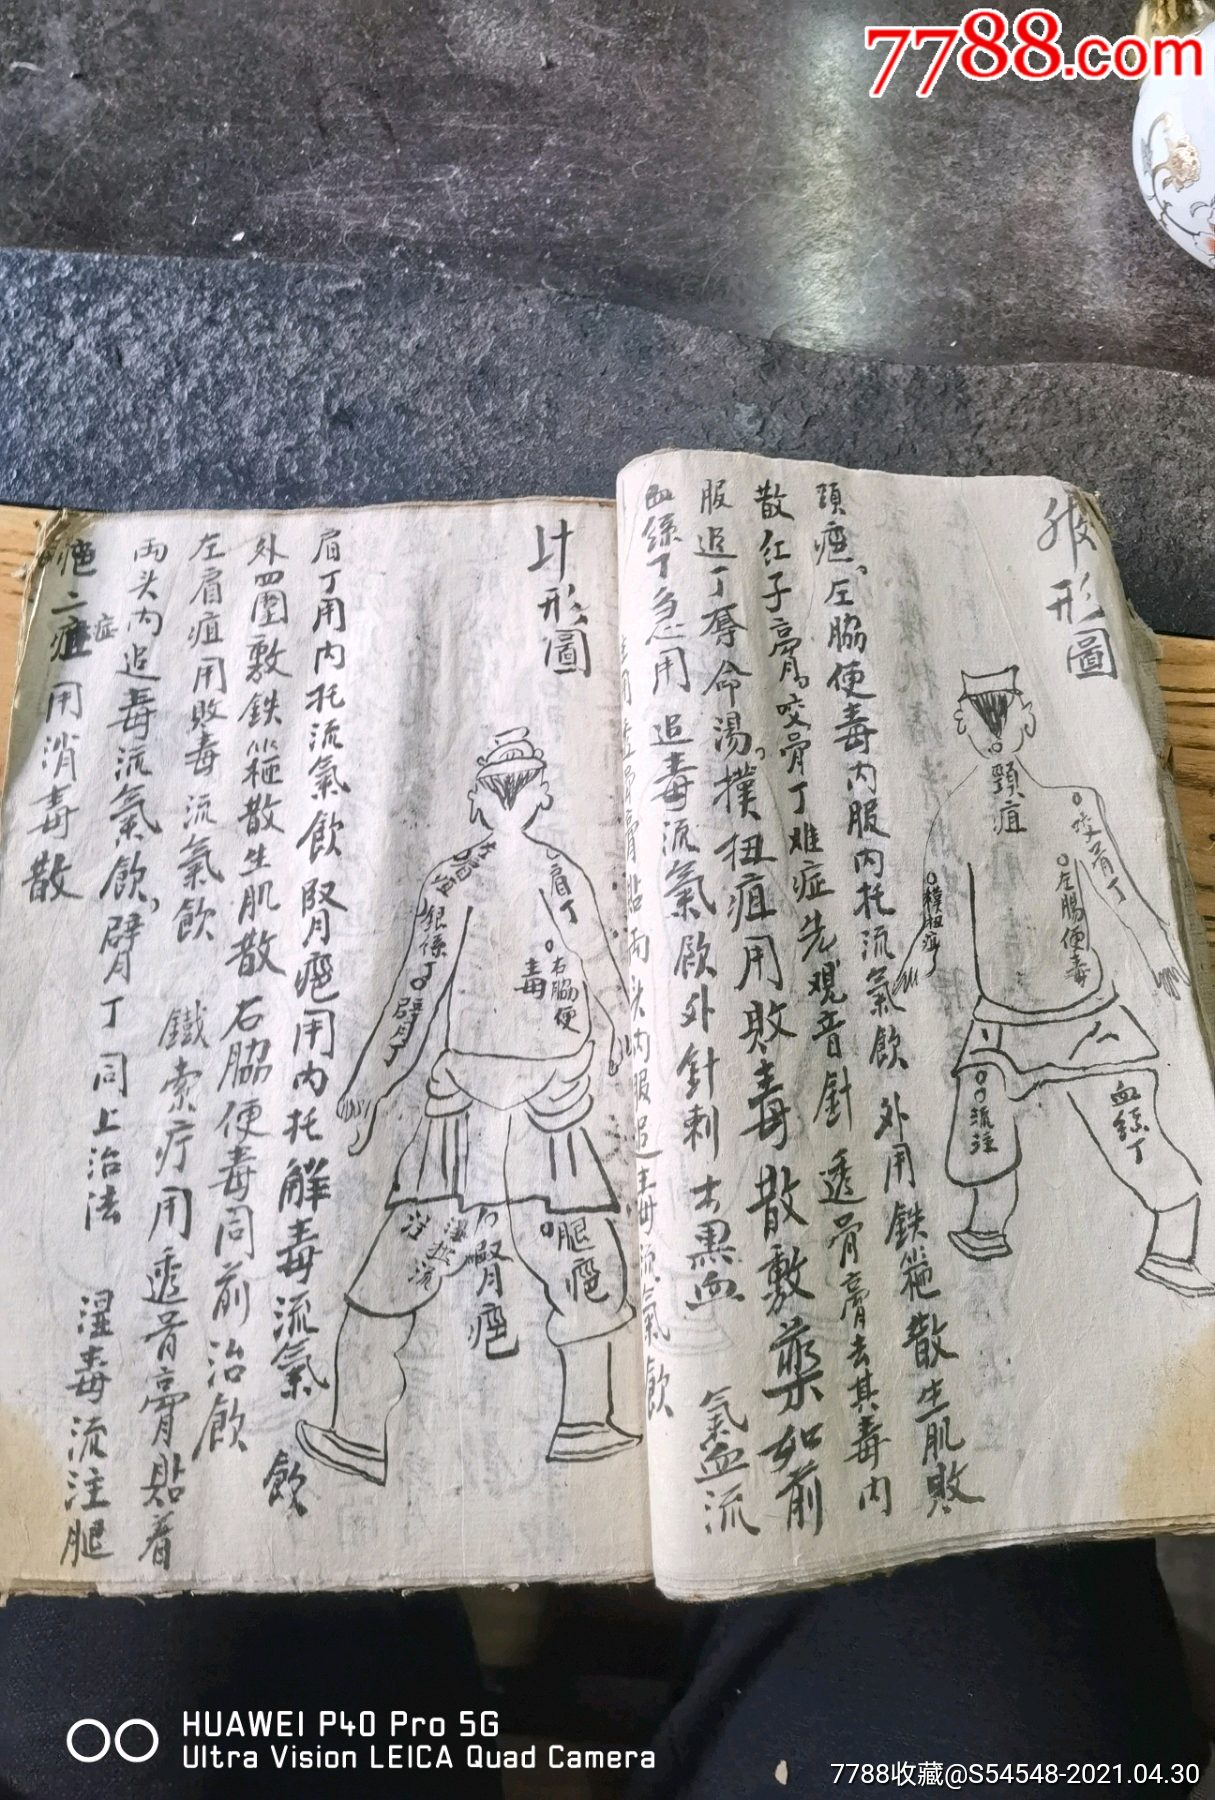 7788.com
形圖
頸疽
左腸便毒
血絲丁
流注
頭疤左脇便毒内服内托流氣飲 外用鉄箍散生肌敗
散紅子膏咬骨丁难症先观音針透骨膏去其毒内
服追丁奪命湯撲扭疽用敗毒散敷藥如前
血絲丁急用追毒流氣飲外針刺去黒血 氣血流
注用透骨膏貼两头内服追毒流氣飲
形圖
肩丁
右脇便毒
銀絲丁
臂丁
腎疤
腿疤
肩丁用内托流氣飲腎疤用内托解毒流氣飲
外四圍敷鉄箍散生肌散右脇便毒同前治飲
左肩疽用敗毒流氣飲 鐵索疔用透骨膏貼着
两头内追毒流氣飲臂丁同上治法 湿毒流注腿
疤二症用消毒散
HUAWEI P40 Pro 5G
Ultra Vision LEICA Quad Camera
7788收藏@S54548-2021.04.30